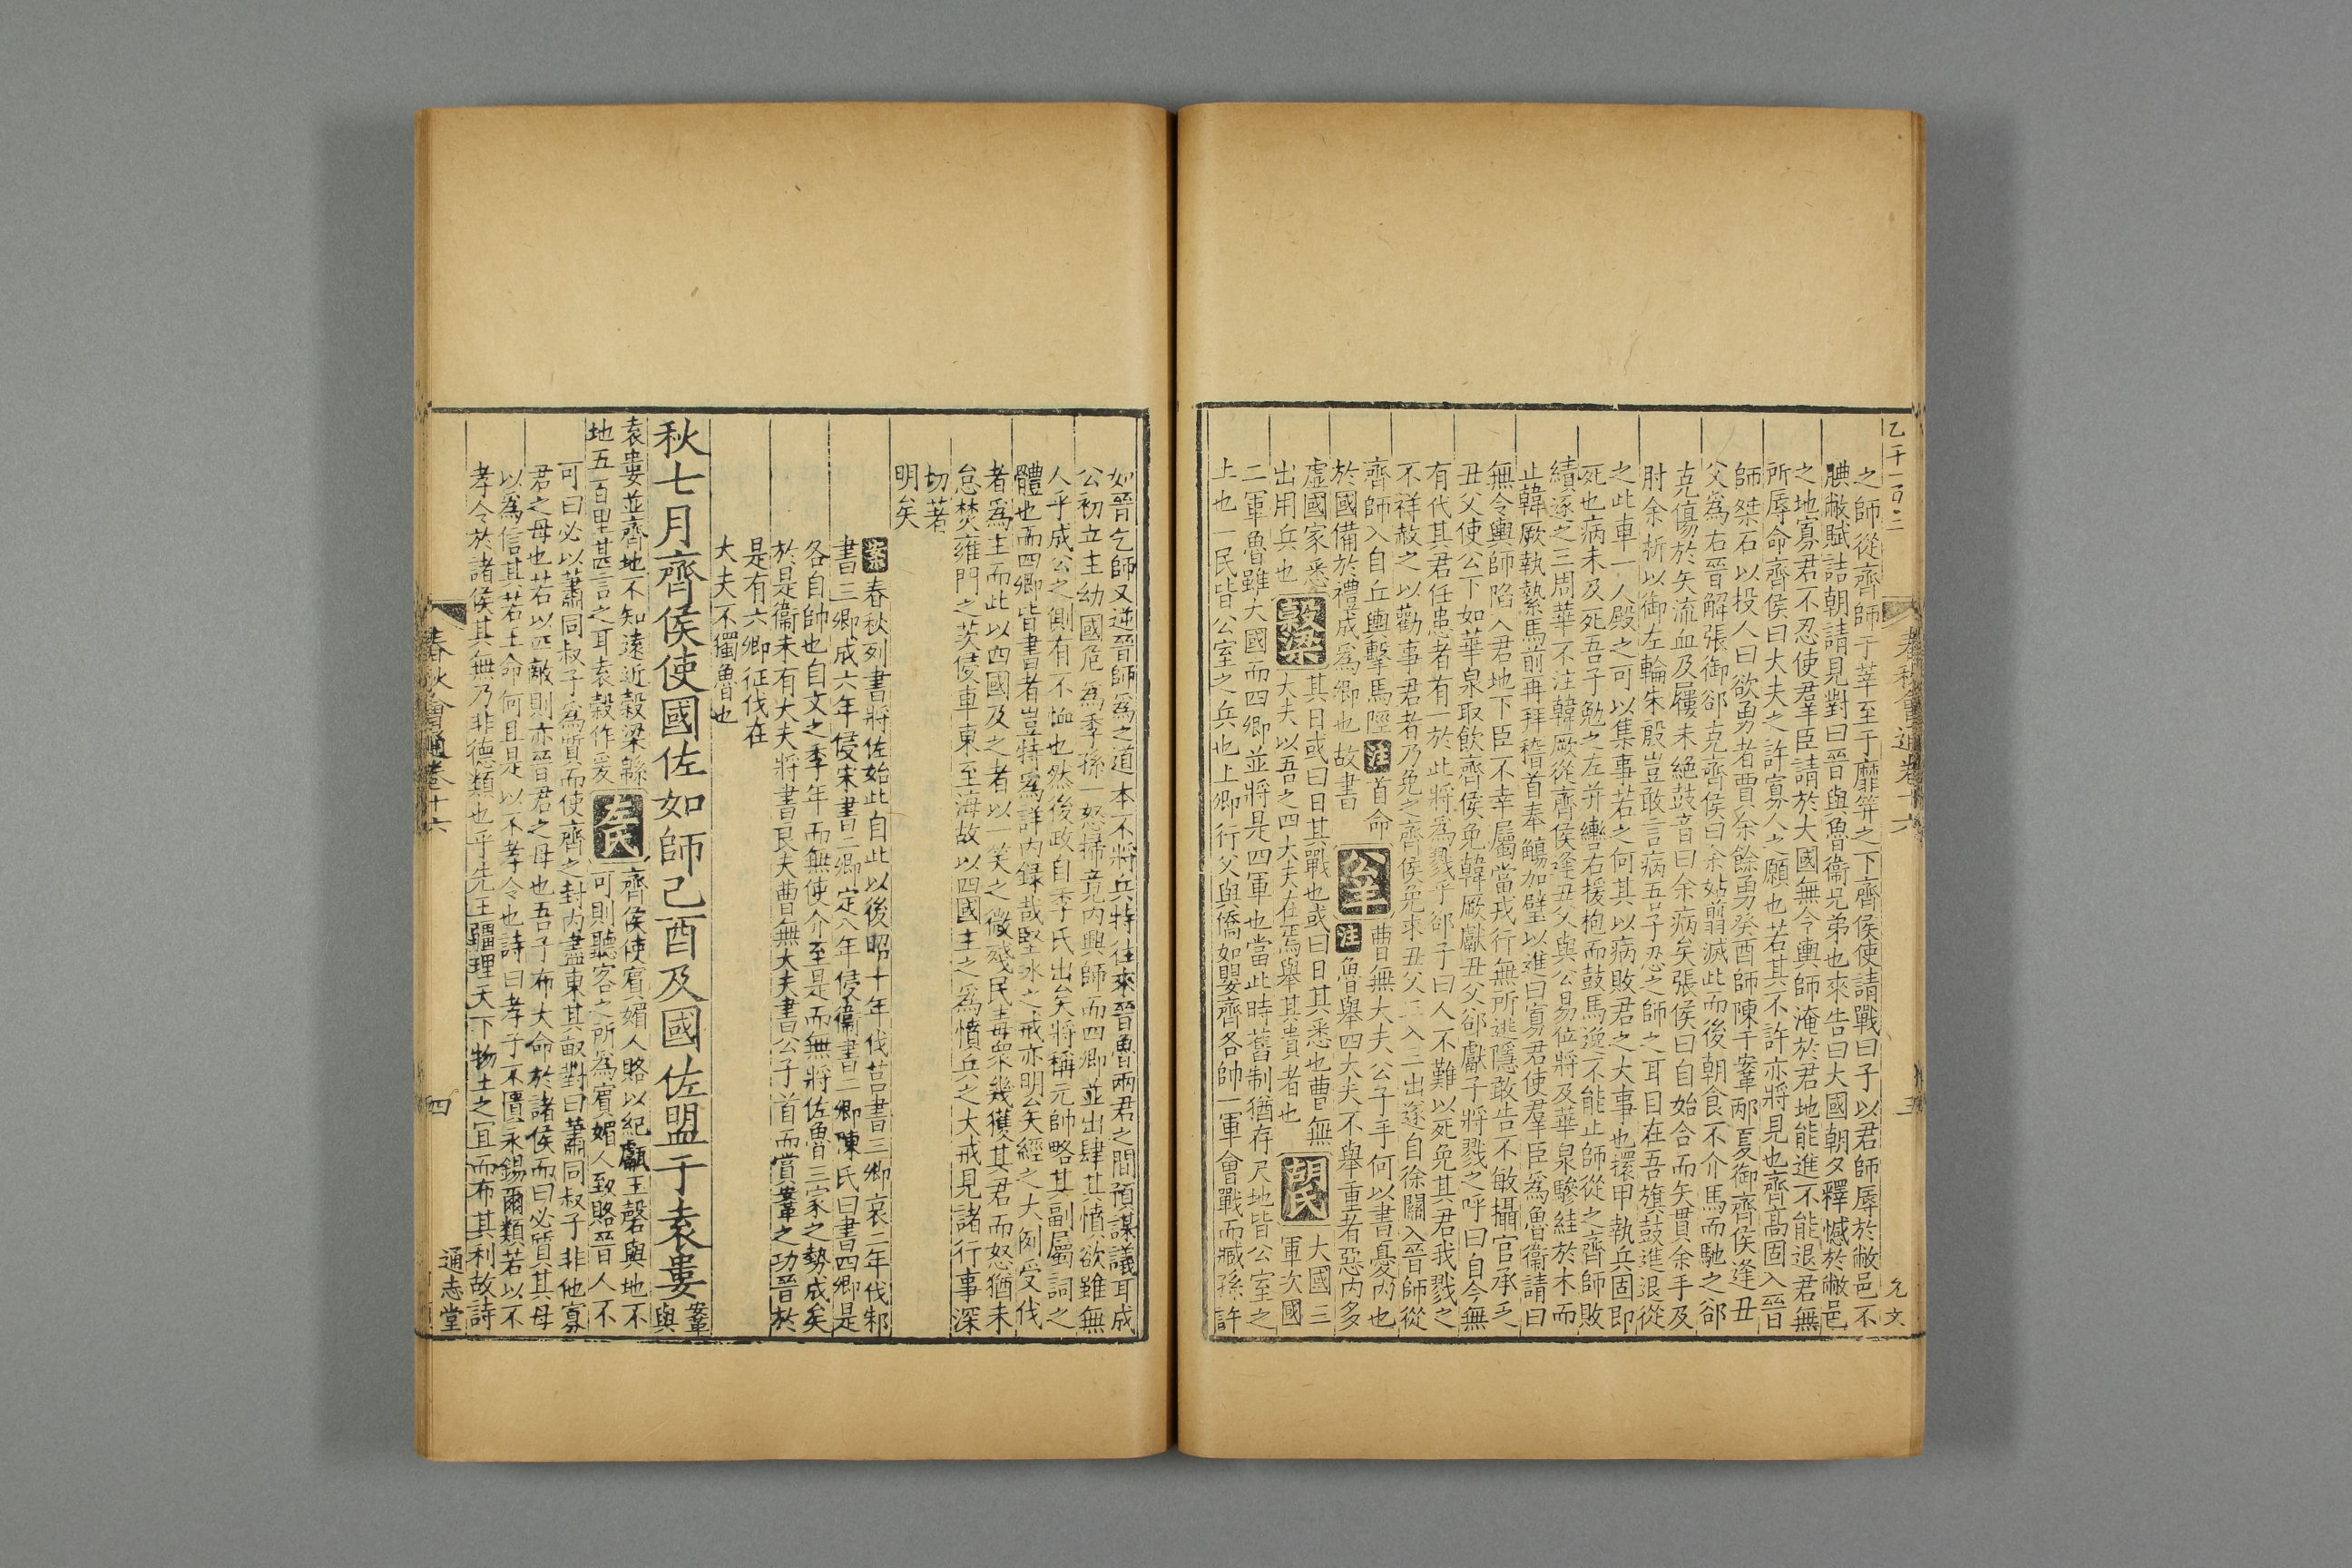 乙千一百三
春秋會通卷十六
三
允文
之師從齊師于莘至于靡笄之下齊侯使請戰曰子以君師辱於敝邑不
腆敝賦詰朝請見對曰晉與魯衞兄弟也來告曰大國朝夕釋憾於敝邑
之地寡君不忍使羣臣請於大國無令輿師淹於君地能進不能退君無
所辱命齊侯曰大夫之許寡人之願也若其不許亦將見也齊高固入晉
師桀石以投人曰欲勇者賈余餘勇癸酉師陳于鞌邴夏御齊侯逢丑
父爲右晉解張御郤克齊侯曰余姑翦滅此而後朝食不介馬而馳之郤
克傷於矢流血及屨未絕鼓音曰余病矣張侯曰自始合而矢貫余手及
肘余折以御左輪朱殷豈敢言病吾子忍之師之耳目在吾旗鼓進退從
之此車一人殿之可以集事若之何其以病敗君之大事也擐甲執兵固即
死也病未及死吾子勉之左并轡右援枹而鼓馬逸不能止師從之齊師敗
績逐之三周華不注韓厥從齊侯逢丑父與公易位將及華泉驂絓於木而
止韓厥執縶馬前再拜稽首奉觴加璧以進曰寡君使羣臣爲魯衞請曰
無令輿師陷入君地下臣不幸屬當戎行無所逃隱敢告不敏攝官承乏
丑父使公下如華泉取飲齊侯免韓厥獻丑父郤獻子將戮之呼曰自今無
有代其君任患者有一於此將爲戮乎郤子曰人不難以死免其君我戮之
不祥赦之以勸事君者乃免之齊侯免求丑父三入三出遂自徐關入晉師從
齊師入自丘輿擊馬陘注首命
於國備於禮成爲卿也故書公羊曹無大夫公子手何以書憂內也
注魯舉四大夫不舉重者惡內多
虛國家悉
出用兵也穀梁其日或曰日其戰也或曰日其悉也曹無
大夫以吾之四大夫在焉舉其貴者也胡氏大國三
軍次國
二軍魯雖大國而四卿並將是四軍也當此時舊制猶存尺地皆公室之
土也一民皆公室之兵也上卿行父與僑如嬰齊各帥一軍會戰而臧孫許
如晉乞師又逆晉師爲之道本不將兵特往來晉魯兩君之間預謀議耳成
公初立主幼國危爲季孫一怒掃竟內興師而四卿並出肆其憤欲雖無
人乎成公之側有不恤也然後政自季氏出矣將稱元帥略其副屬詞之
體也而四卿皆書者豈特爲詳內錄哉堅冰之戒亦明矣經之大例受伐
者爲主而此以四國及之者以一笑之微殘民毒衆幾獲其君而怒猶未
怠焚雍門之茨侵車東至海故以四國主之爲憤兵之大戒見諸行事深
切著
明矣
案春秋列書將佐始此自此以後昭十年伐莒書三卿哀二年伐邾
書三卿成六年侵宋書二卿定八年侵衞書二卿陳氏曰書四卿是
各自帥也自文之季年而無使介至是而無將佐魯三家之勢成矣
於是衞未有大夫將書良夫曹無大夫書公子首而賞鞌之功晉於
是有六卿征伐在
大夫不獨魯也
秋七月齊侯使國佐如師己酉及國佐盟于袁婁鞌
與
袁婁並齊地不知遠近穀梁緜
地五百里甚言之耳袁穀作爰左氏齊侯使賓媚人賂以紀甗玉磬與地不
可則聽客之所爲賓媚人致賂晉人不
可曰必以蕭同叔子爲質而使齊之封內盡東其畝對曰蕭同叔子非他寡
君之母也若以匹敵則亦晉君之母也吾子布大命於諸侯而曰必質其母
以爲信其若王命何且是以不孝令也詩曰孝子不匱永錫爾類若以不
孝令於諸侯其無乃非德類也乎先王疆理天下物土之宜而布其利故詩
春秋會通卷十六
四
通志堂